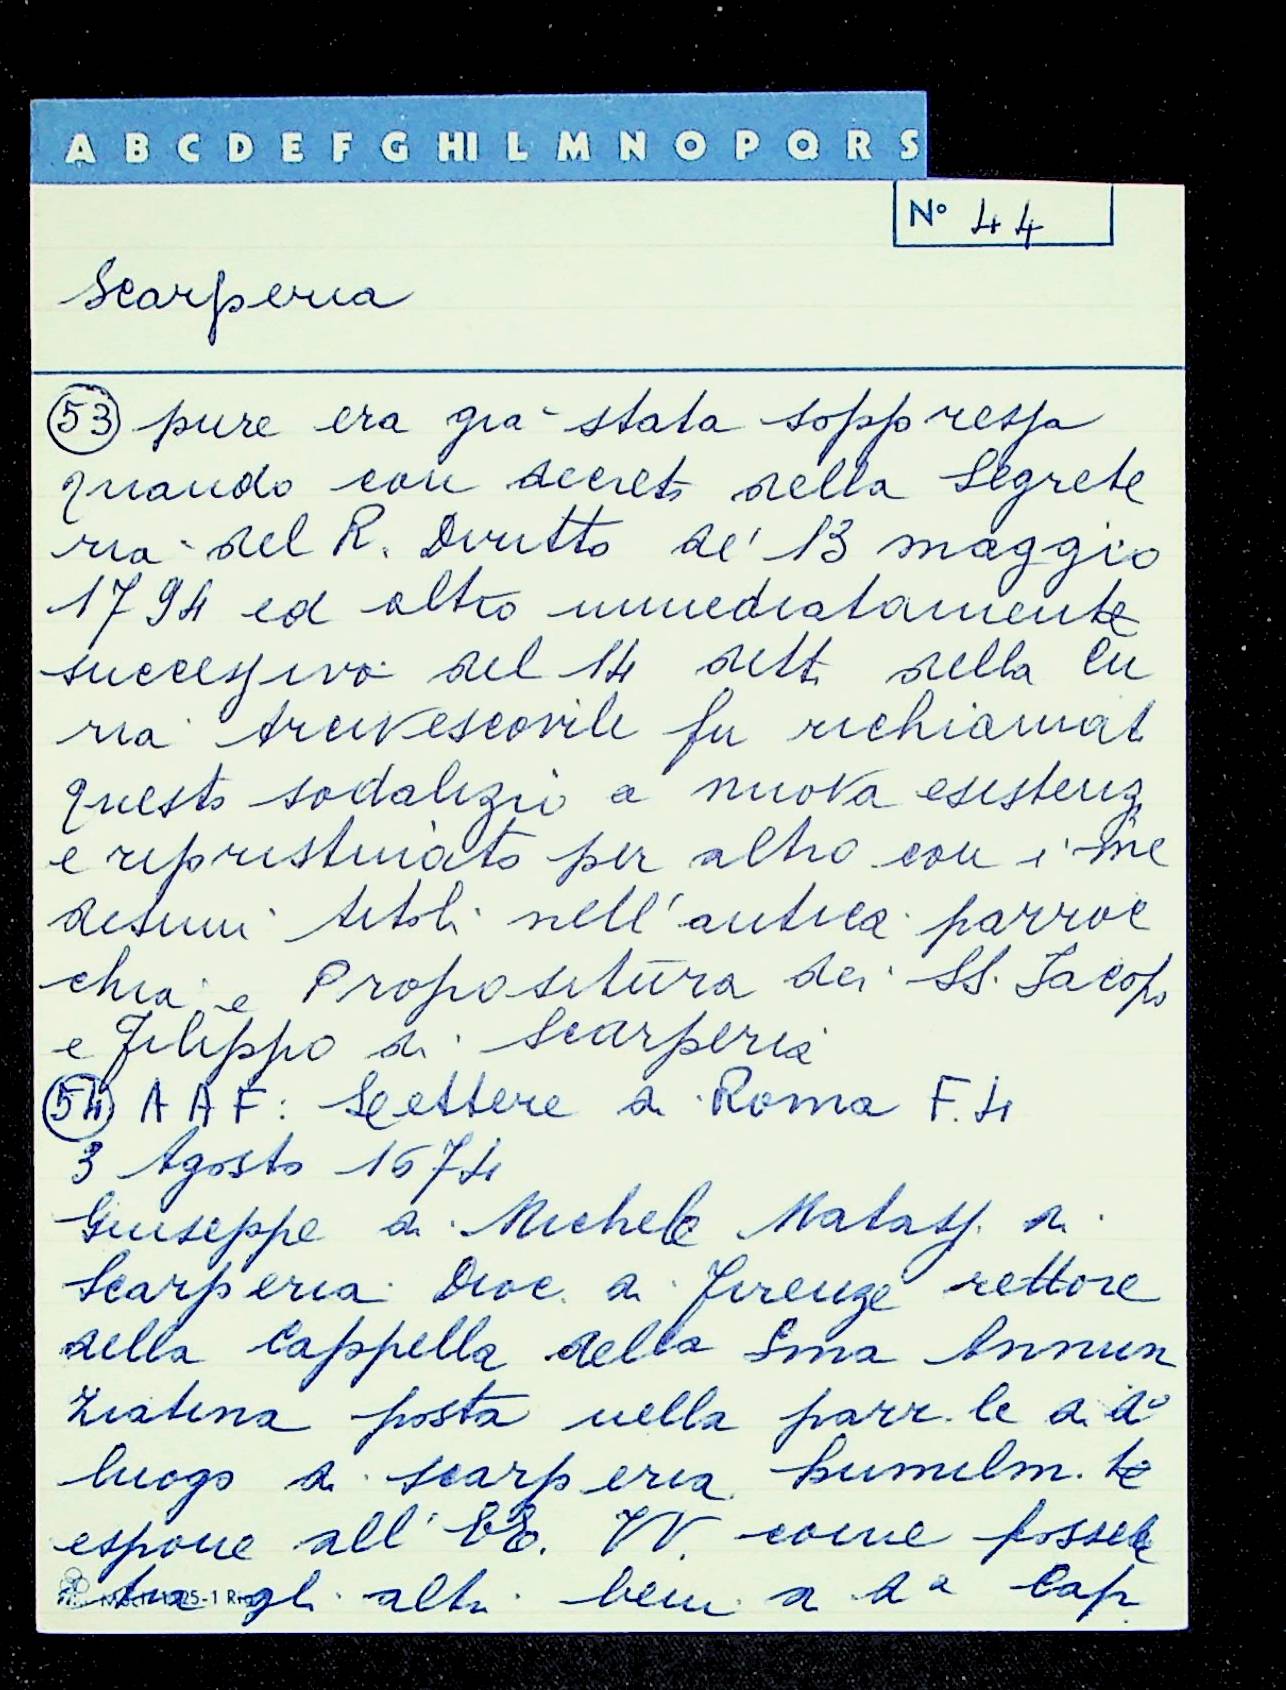 A B C D E F G HI L M N O P Q R S
N° 44
Scarperia
53 pure era già stata soppressa
quando con decreto della Segrete
ria del R. Diritto de' 13 maggio
1794 ed altro immediatamente
successivo del 14 detto della Cu
ria Arcivescovile fu richiamat
questo sodalizio a nuova esistenz
e ripristinato per altro con i me
desimi titoli nell'antica parroc
chia e Propositura dei SS. Jacopo
e Filippo di Scarperia
54 AAF: Lettere di Roma F. 4
3 Agosto 1674
Giuseppe di Michele Matass. di
Scarperia Dioc. di Firenze rettore
della Cappella della Sma Annun
ziatina posta nella parr.le di do
luogo di Scarperia humilm.te
espone all' EE. VV. come possede
tra gli altri beni di da Cap